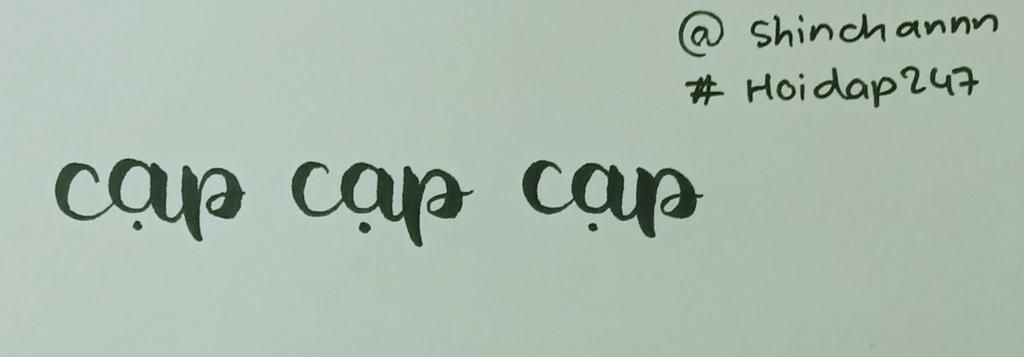 @ Shinchannn
# Hoidap247
cạp cạp cạp